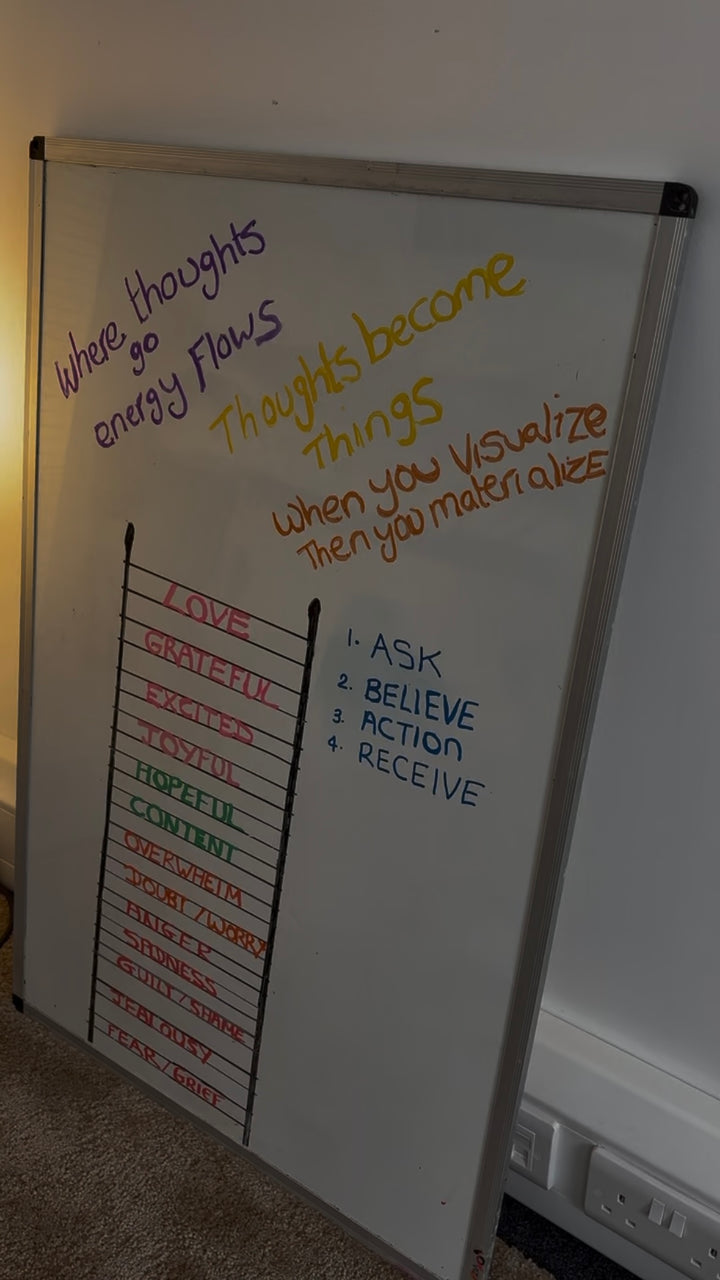 Where thoughts
go
energy Flows
Thoughts become
Things
When you Visualize
Then you materialize
LOVE
GRATEFUL
EXCITED
JOYFUL
HOPEFUL
CONTENT
OVERWHELM
DOUBT / WORRY
ANGER
SADNESS
GUILT / SHAME
JEALOUSY
FEAR / GRIEF
1. ASK
2. BELIEVE
3. ACTION
4. RECEIVE